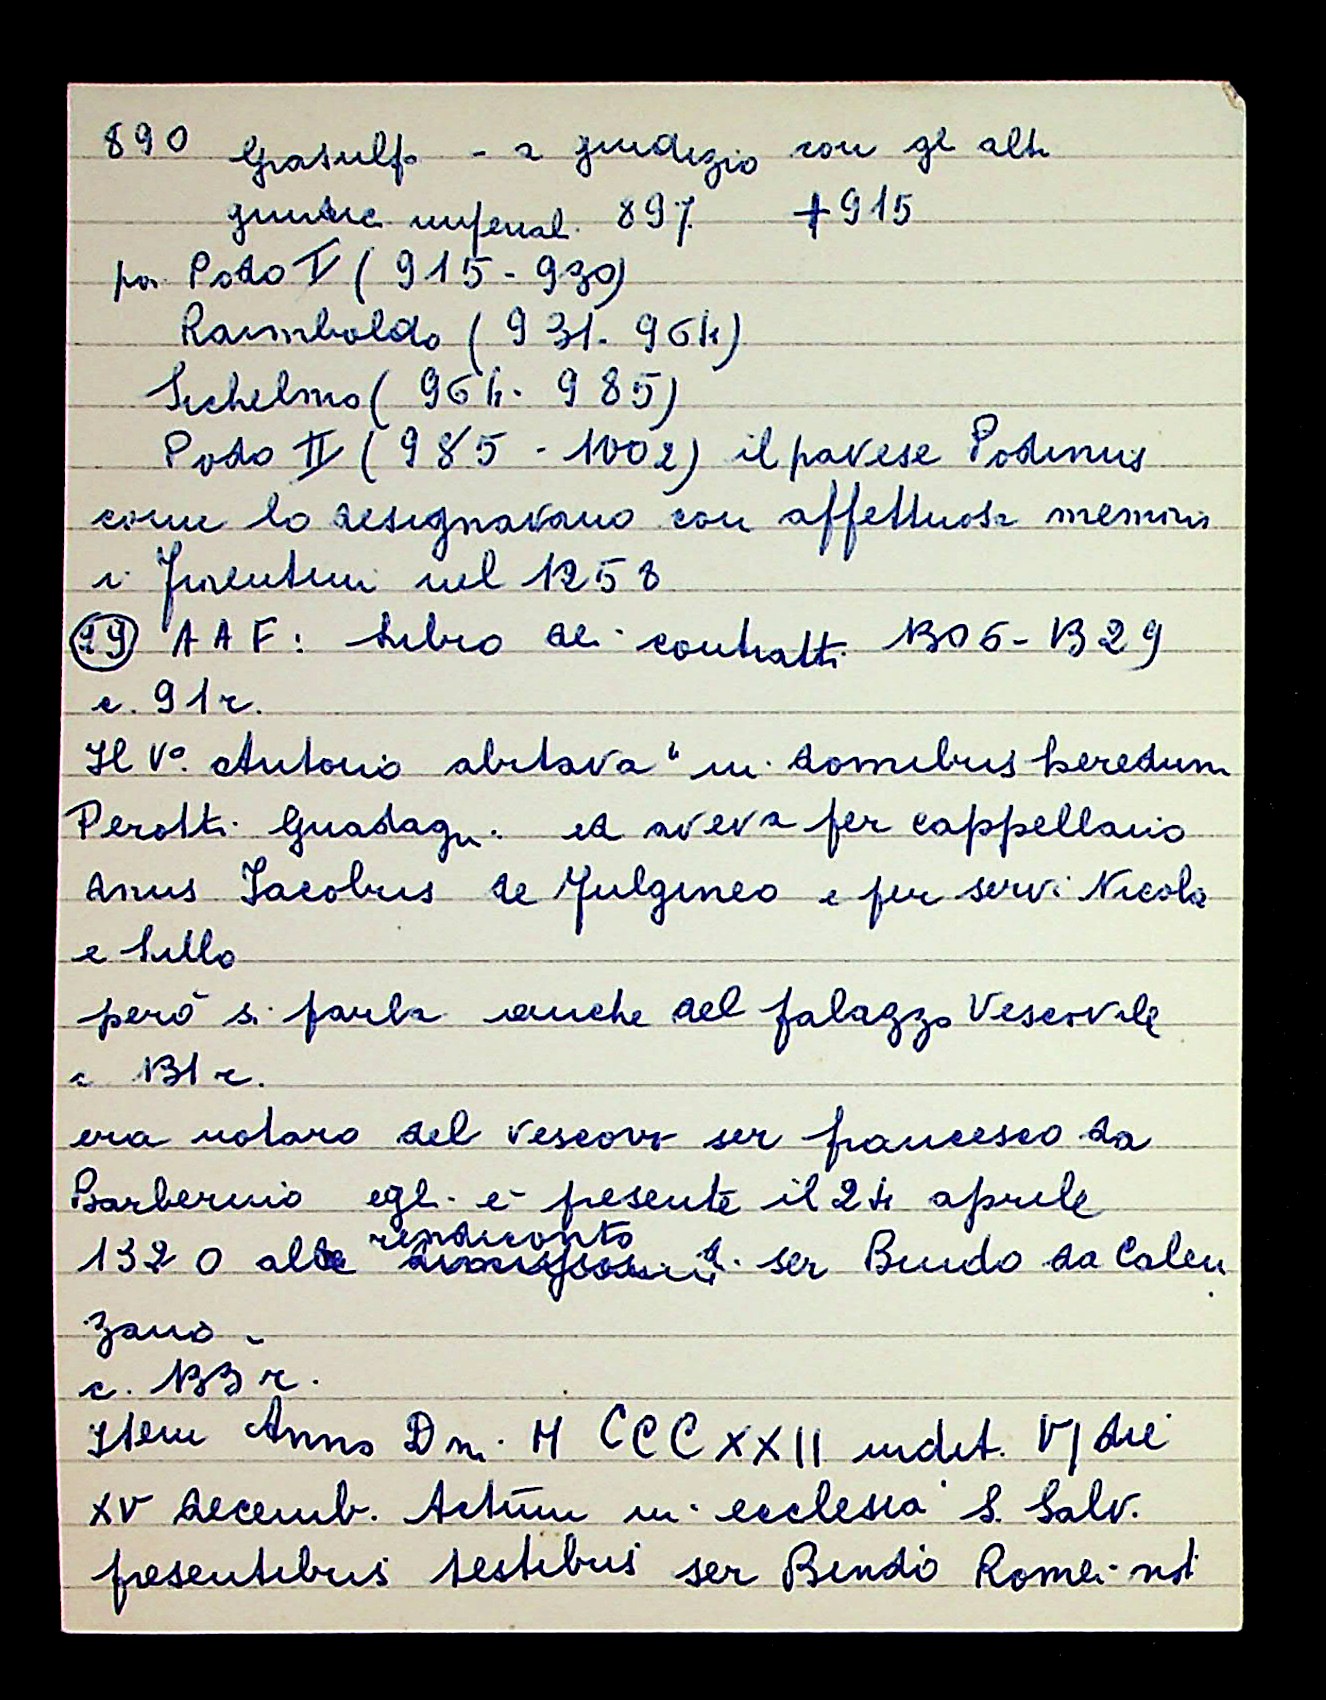 890 Grasulfo - a giudizio con gl altri
giudici imperial. 897 +915
poi Podo I (915-930)
Raimboldo (931-964)
Sichelmo (964-985)
Podo II (985-1002) il pavese Podinus
come lo designavano con affettuosa memoria
i fiorentini nel 1258
(29) AAF: Libro dei contratti 1306-1329
c. 91r.
Il Vo. Antonio abitava "in domibus heredum
Perotti Guadagn. ed aveva per cappellano
dnus Jacobus de Fulgineo e per servi Nicola
e Lillo
però si parla anche del palazzo Vescovile
c 131r.
era notaro del vescovo ser francesco da
Barberino egli è presente il 24 aprile
rendiconto
1320 al di ser Bindo da Calen
zano -
c. 133r.
Item Anno Dni. MCCCXXII indit. VI die
XV decemb. Actum in ecclesia S. Salv.
presentibus testibus ser Bindo Romei not